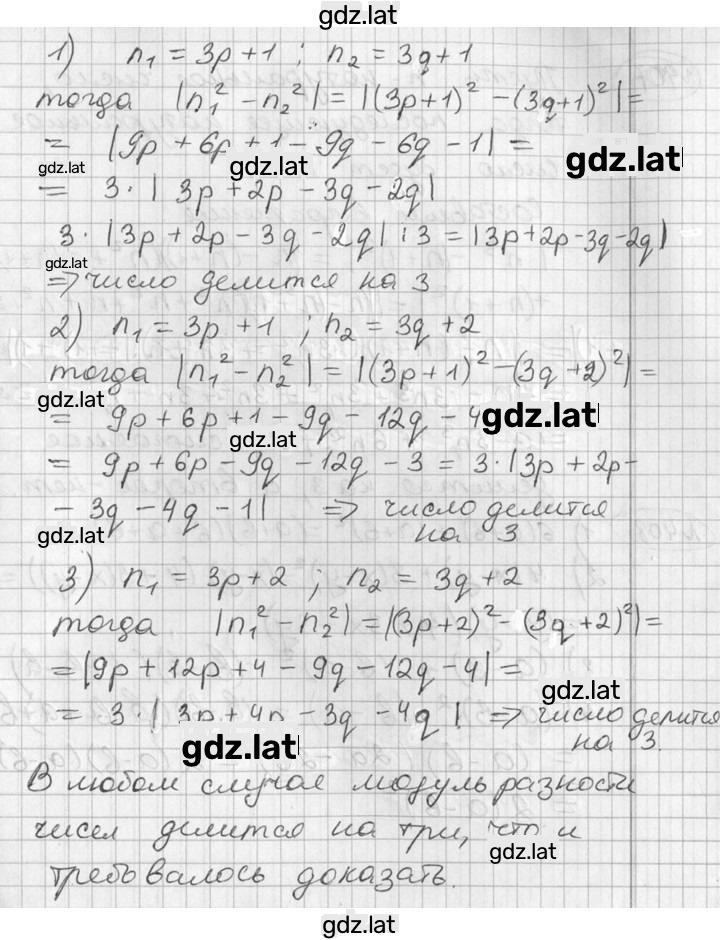 gdz.lat
1) n₁ = 3p + 1 ; n₂ = 3q + 1
тогда |n₁² - n₂²| = |(3p+1)² - (3q+1)²| =
= |9p + 6p + 1 - 9q - 6q - 1| =
gdz.lat gdz.lat gdz.lat
= 3 · | 3p + 2p - 3q - 2q|
3 · |3p + 2p - 3q - 2q| : 3 = |3p+2p-3q-2q|
gdz.lat
⇒ число делится на 3
2) n₁ = 3p + 1 ; n₂ = 3q + 2
тогда |n₁² - n₂²| = |(3p+1)² - (3q+2)²| =
gdz.lat
= 9p + 6p + 1 - 9q - 12q - 4
gdz.lat gdz.lat
= 9p + 6p - 9q - 12q - 3 = 3 · |3p + 2p -
- 3q - 4q - 1| ⇒ число делится
gdz.lat на 3
3) n₁ = 3p + 2 ; n₂ = 3q + 2
тогда |n₁² - n₂²| = |(3p+2)² - (3q+2)²| =
= |9p + 12p + 4 - 9q - 12q - 4| =
gdz.lat
= 3 · | 3p + 4p - 3q - 4q | ⇒ число делится
gdz.lat на 3.
В любом случае модуль разности
чисел делится на три, что и
gdz.lat
требовалось доказать.
gdz.lat